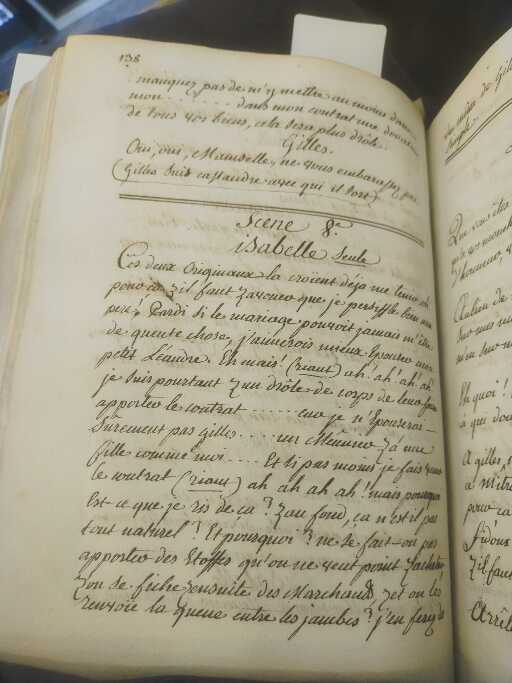 138
manquez pas de m'y mettre au moins dans
mon ....... dans mon contrat une donation
de tous vos biens, cela sera plus drôle.
Gilles.
Oui, oui, Mamselle, ne vous embarassez pas
(Gilles suit cassandre avec qui il sort)
Scene 8.e
isabelle seule
Ces deux originaux la croient déja me tenir, oh
pour ca, z'il faut z'avouer que je persiffle bien mon
pere! Pardi si le mariage pouvoit jamais m'être
de queute chose, j'aimerois mieux Epouser mon
petit Léandre. Eh mais! (riant) ah! ah! ah! ah!
je suis pourtant z'un drôle de corps de leur faire
apporter le contrat ...... car je n'Epouserai
surement pas Gilles .... un Meûnier z'à une
fille comme moi .... Et si pas moins je fais
le contrat (riant) ah ah ah ah! mais pourquoi
Est-ce que je ris de ca? z'au fond, ca n'est il pas
tout naturel? Et pourquoi? ne se fait-on pas
apporter des Etoffes qu'on ne veut point z'acheter
z'on se fiche z'ensuite des Marchands, z'et on les
renvoie la queue entre les jambes? j'en ferai